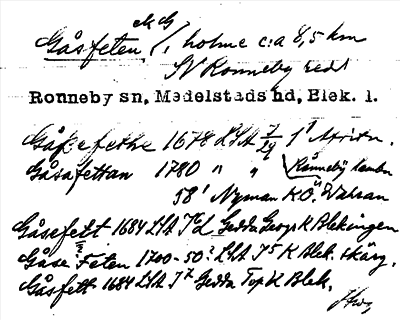 Gåsfeten /, holme c:a 8,5 km
SV Ronneby redd
Ronneby sn, Medelstads hd, Blek. l.
1678 LSA
Gåsafettan 1780 " " Ronneby hamn
58' Nyman K.Ö.
Gåsefett 1684 LSA Gedda Geogr K Blekingen
Gåse Feten 1700-50? LSA J5 K Blek. skärg.
Gåsfett 1684 LSA J2 Gedda Top K Blek.